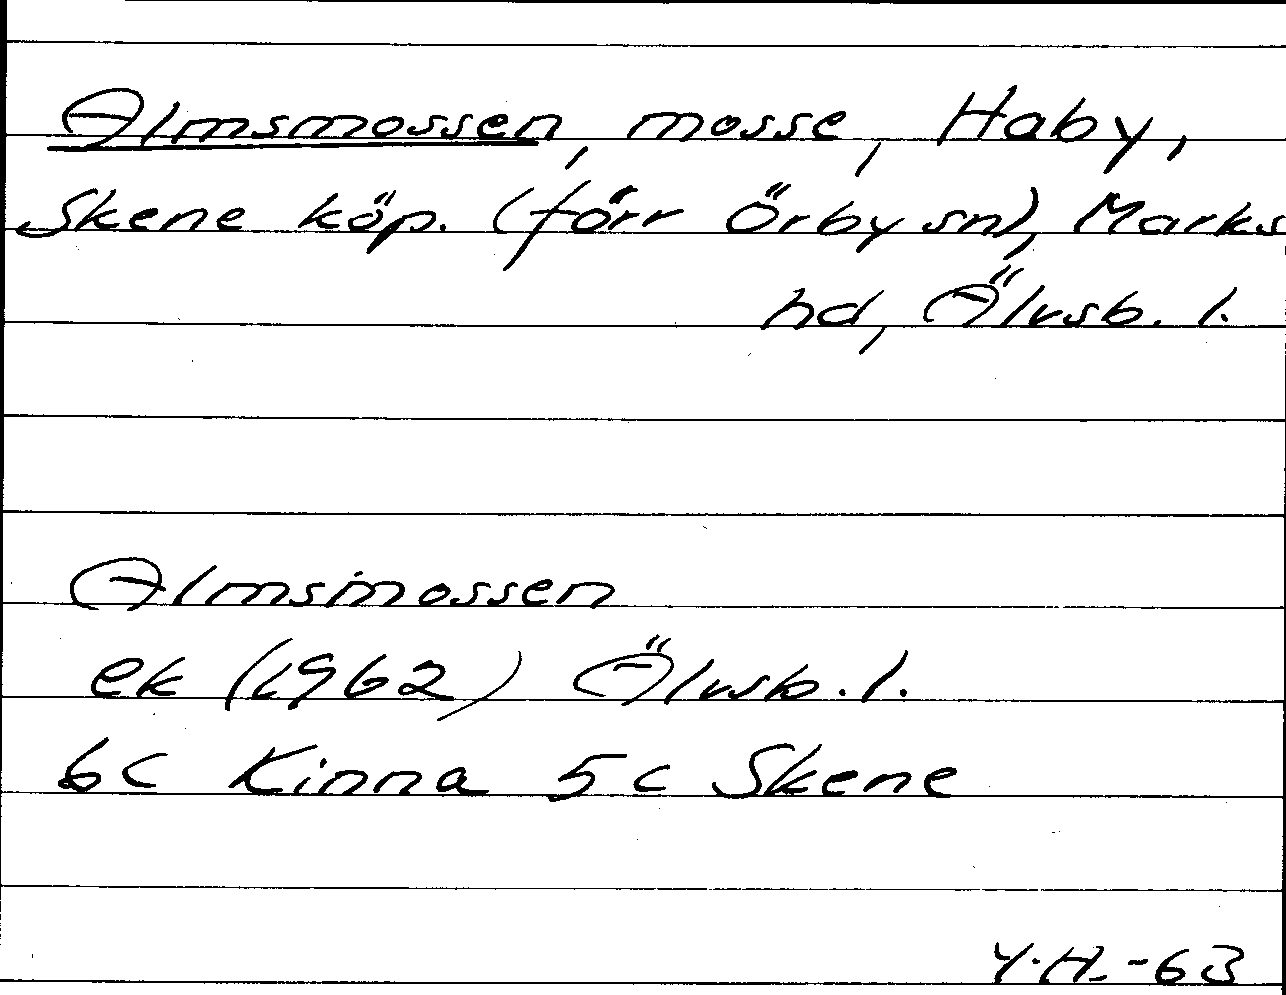 Almsmossen, mosse, Haby,
Skene köp. (förr Örby sn), Marks
hd, Älvsb. l.
Almsmossen
ek (1962) Älvsb. l.
6c Kinna 5c Skene
Y.H.-63